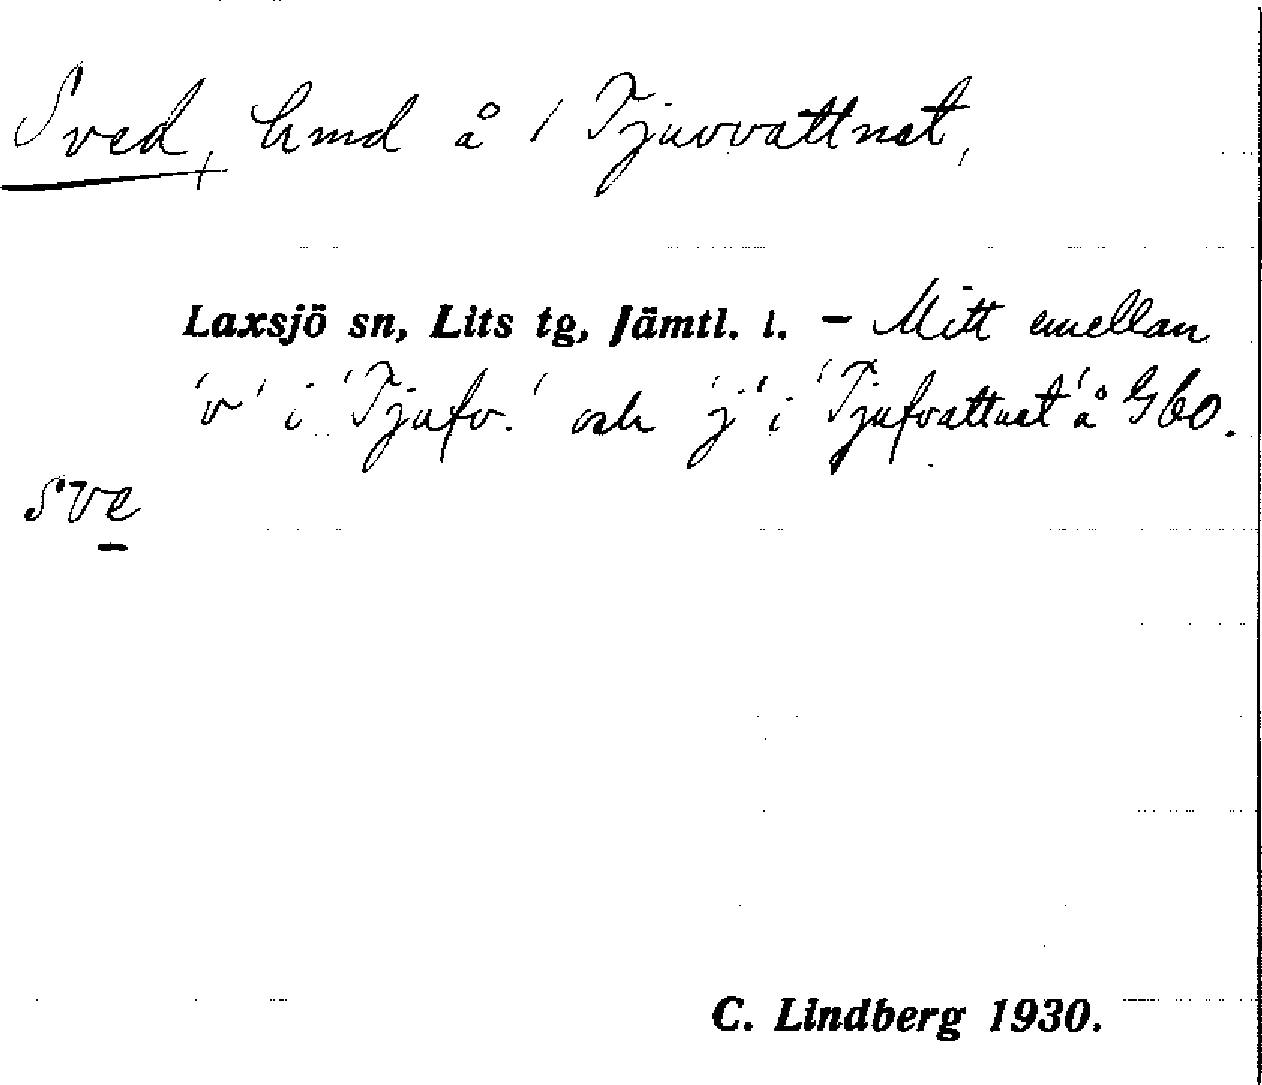 Sved, hmd å / Tjuvvattnet,
Laxsjö sn, Lits tg, Jämtl. l. – Mitt emellan
'v' i 'Tjufv.' och 'j' i 'Tjufvattnet' å Gbo.
sve
C. Lindberg 1930.